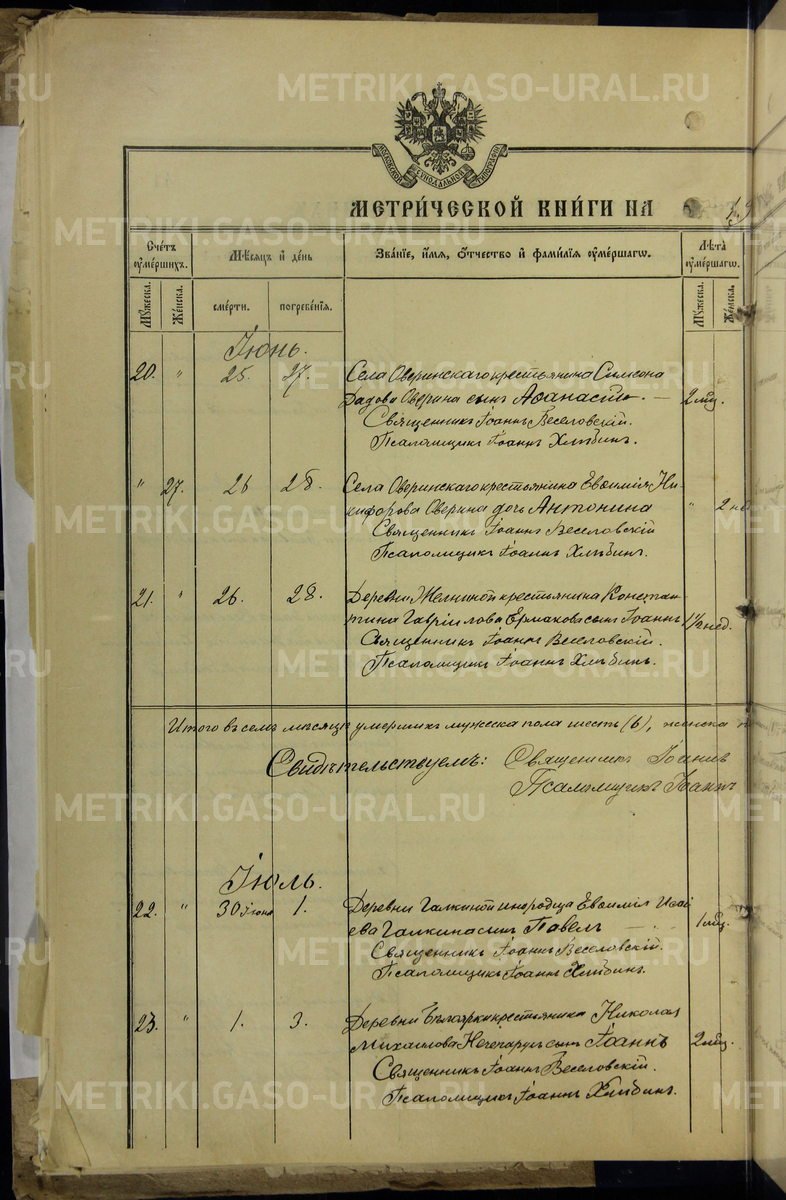 METRIKI.GASO-URAL.RU
МОСКОВСКОЙ СѴНОДАЛЬНОЙ ТИПОГРАФІИ
МЕТРИ́ЧЕСКОЙ КНИ́ГИ НА
Сче́тъ ᲂу҆ме́ршихъ.
Мѣ́сяцъ и҆ де́нь
Зва́нїе, и҆́мя, ѻ҆́тчество и҆ фами́лїя ᲂу҆ме́ршагѡ.
Лѣ́та ᲂу҆ме́ршагѡ.
Мꙋ́жеска.
Же́нска.
сме́рти.
погребе́нїя.
Мꙋ́жеска.
Же́нска.
Іюнь.
20. " 25 27. Села Оверинскаго крестьянина Симеона
Оверина сынъ Аѳанасій. — 2 мѣс.
Священникъ Іоаннъ Веселовскій.
Псаломщикъ Іоаннъ Хлѣбинъ.
" 27. 26 28. Села Оверинскаго крестьянина Евѳимія Ни-
кифорова Оверина дочь Антонина " 2 не
Священникъ Іоаннъ Веселовскій
Псаломщикъ Іоаннъ Хлѣбинъ.
21. " 26. 28. Деревни крестьянина Констан-
тина Гавріилова Ермакова сынъ Іоаннъ 1½ нед.
Священникъ Іоаннъ Веселовскій.
Псаломщикъ Іоаннъ Хлѣбинъ.
Итого въ семъ мѣсяцѣ умершихъ мужеска пола шесть (6), женска
Свидѣтельствуемъ: Священникъ Іоаннъ
Псаломщикъ Іоаннъ
Іюль.
22. " 30 Іюня 1. Деревни Галкиной инородца Евѳимія Исаі-
ева Галкина сынъ Павелъ — 1 мѣс.
Священникъ Іоаннъ Веселовскій.
Псаломщикъ Іоаннъ Хлѣбинъ.
23. " 1. 3. Деревни Бѣлоярки крестьянина Николая
Михаилова сынъ Іоаннъ 2 мѣс.
Священникъ Іоаннъ Веселовскій.
Псаломщикъ Іоаннъ Хлѣбинъ.